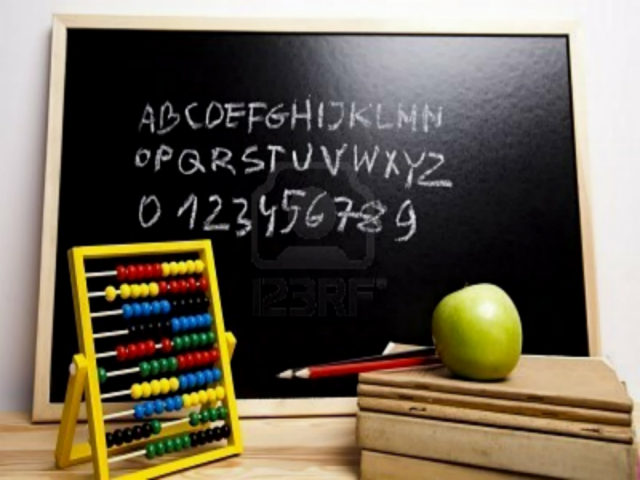 ABCDEFGHIJKLMN
OPQRSTUVWXYZ
0123456789
123RF®